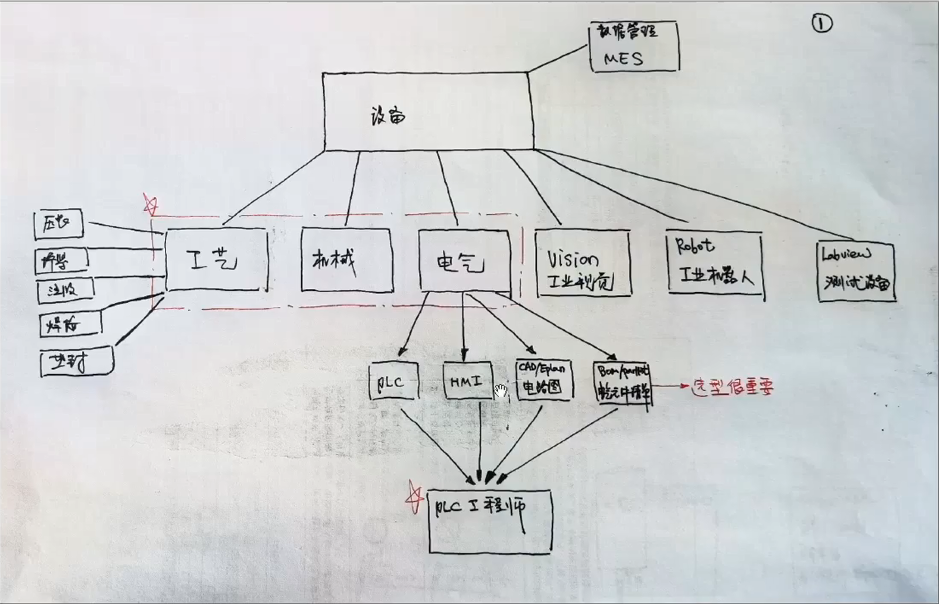 ①
数据管理
MES
设备
压装
注胶
焊接
工艺
机械
电气
Vision
工业视觉
Robot
工业机器人
Labview
测试设备
PLC
HMI
CAD/Eplan
电路图
选型很重要
PLC工程师